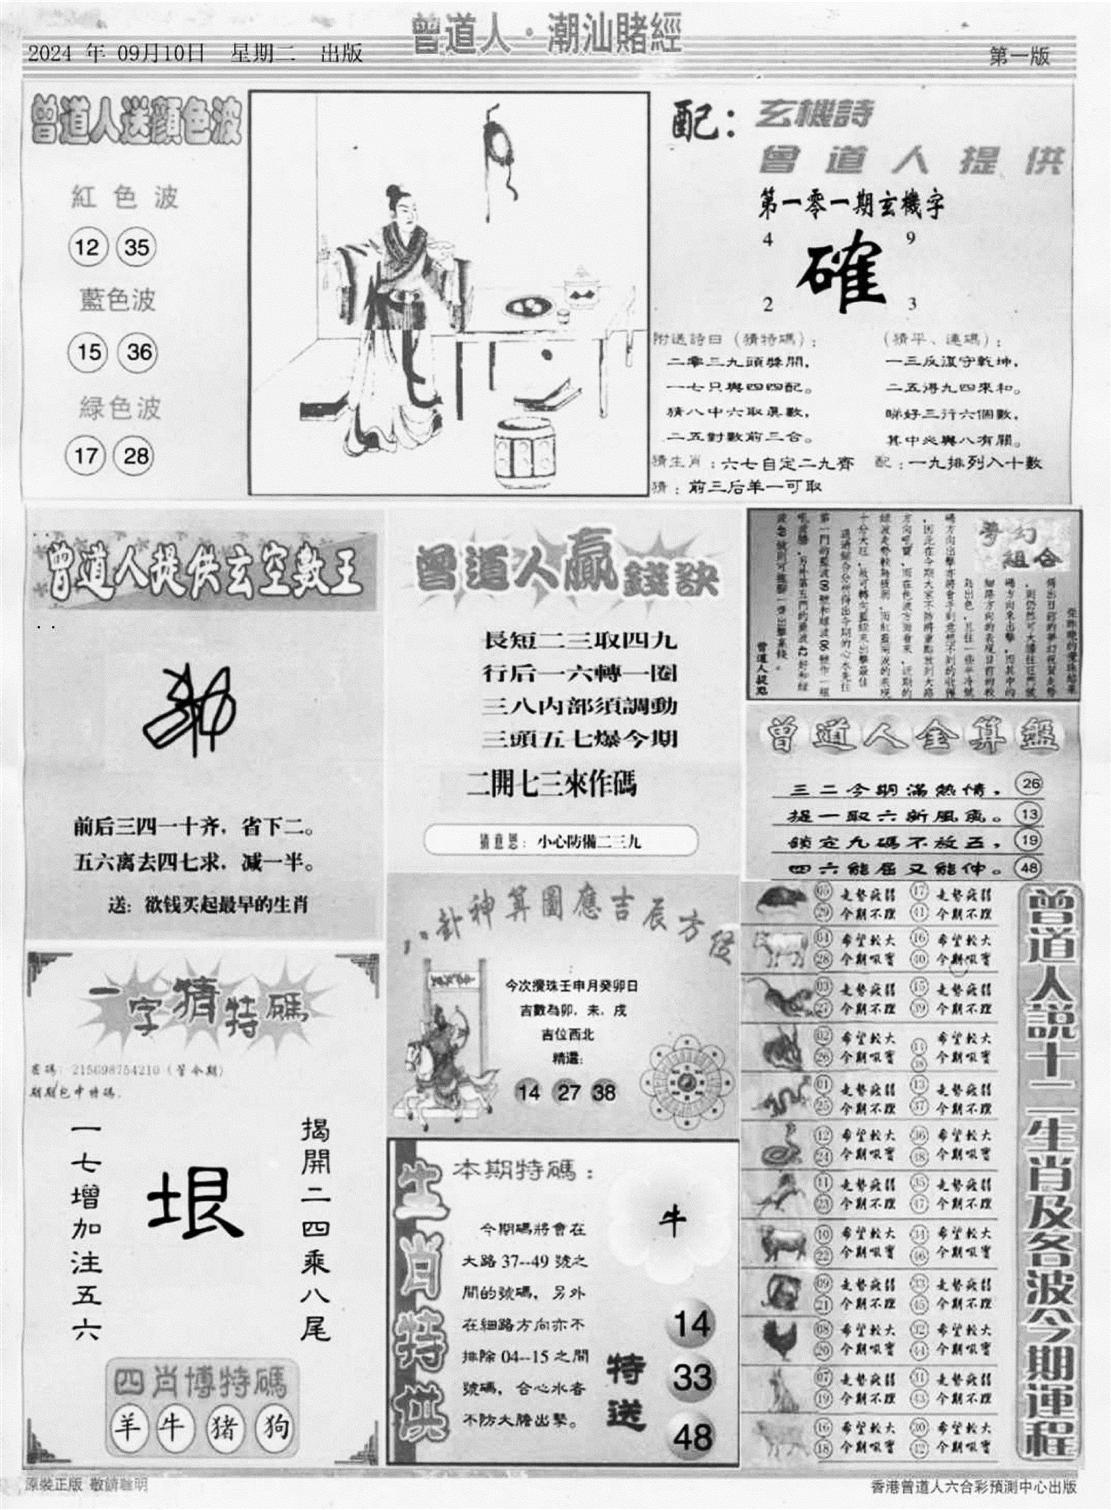 曾道人·潮汕賭經
2024 年 09月10日 星期二 出版
第一版
曾道人送顏色波
紅色波
12 35
藍色波
15 36
緑色波
17 28
配：
玄機詩
曾道人提供
第一零一期玄機字
4 9
確
2 3
附送詩曰（猜特碼）：
二零三九頭獎開，
一七只與四四配。
猜八中六取真數，
二五對數前三合。
猜生肖：六七自定二九齊
猜：前三后羊一可取
（猜平、連碼）：
一三反復守乾坤，
二五得九四來和。
睇好三行六個數，
其中必與八有關。
配：一九排列入十數
曾道人提供玄空數王
前后三四一十齐，省下二。
五六离去四七求，减一半。
送：欲钱买起最早的生肖
曾道人贏錢訣
長短二三取四九
行后一六轉一圈
三八内部須調動
三頭五七爆今期
二開七三來作碼
猜意思：小心防備二三九
夢幻組合
曾道人提點
曾道人金算盤
三二今期滿熱情， 26
提一取六新風氣。 13
鎖定九碼不放五， 19
四六能屈又能伸。 48
一字猜特碼
密碼：215698754210（管今期）
期期包中特碼.
揭開二四乘八尾
垠
一七增加注五六
四肖博特碼
羊 牛 猪 狗
八卦神算圖應吉辰方位
今次攪珠壬申月癸卯日
吉數為卯、未、戌
吉位西北
精選：
14 27 38
生肖特供
本期特碼：
今期碼將會在
大路 37--49 號之
間的號碼，另外
在細路方向亦不
排除 04--15 之間
號碼，合心水者
不防大膽出擊。
牛
特送
14
33
48
曾道人説十二生肖及各波今期運程
05 走勢疲弱 17 走勢疲弱
29 今期不理 41 今期不理
04 希望較大 16 希望較大
28 今期吼實 40 今期吼實
03 走勢疲弱 15 走勢疲弱
27 今期不理 39 今期不理
02 希望較大 14 希望較大
26 今期吼實 38 今期吼實
01 走勢疲弱 13 走勢疲弱
25 今期不理 37 今期不理
12 希望較大 36 希望較大
24 今期吼實 48 今期吼實
11 走勢疲弱 35 走勢疲弱
23 今期不理 47 今期不理
10 希望較大 34 希望較大
22 今期吼實 46 今期吼實
09 走勢疲弱 33 走勢疲弱
21 今期不理 45 今期不理
08 希望較大 32 希望較大
20 今期吼實 44 今期吼實
07 走勢疲弱 31 走勢疲弱
19 今期不理 43 今期不理
希望較大 30 希望較大
18 今期吼實 42 今期吼實
原裝正版 敬請聰明
香港曾道人六合彩預測中心出版